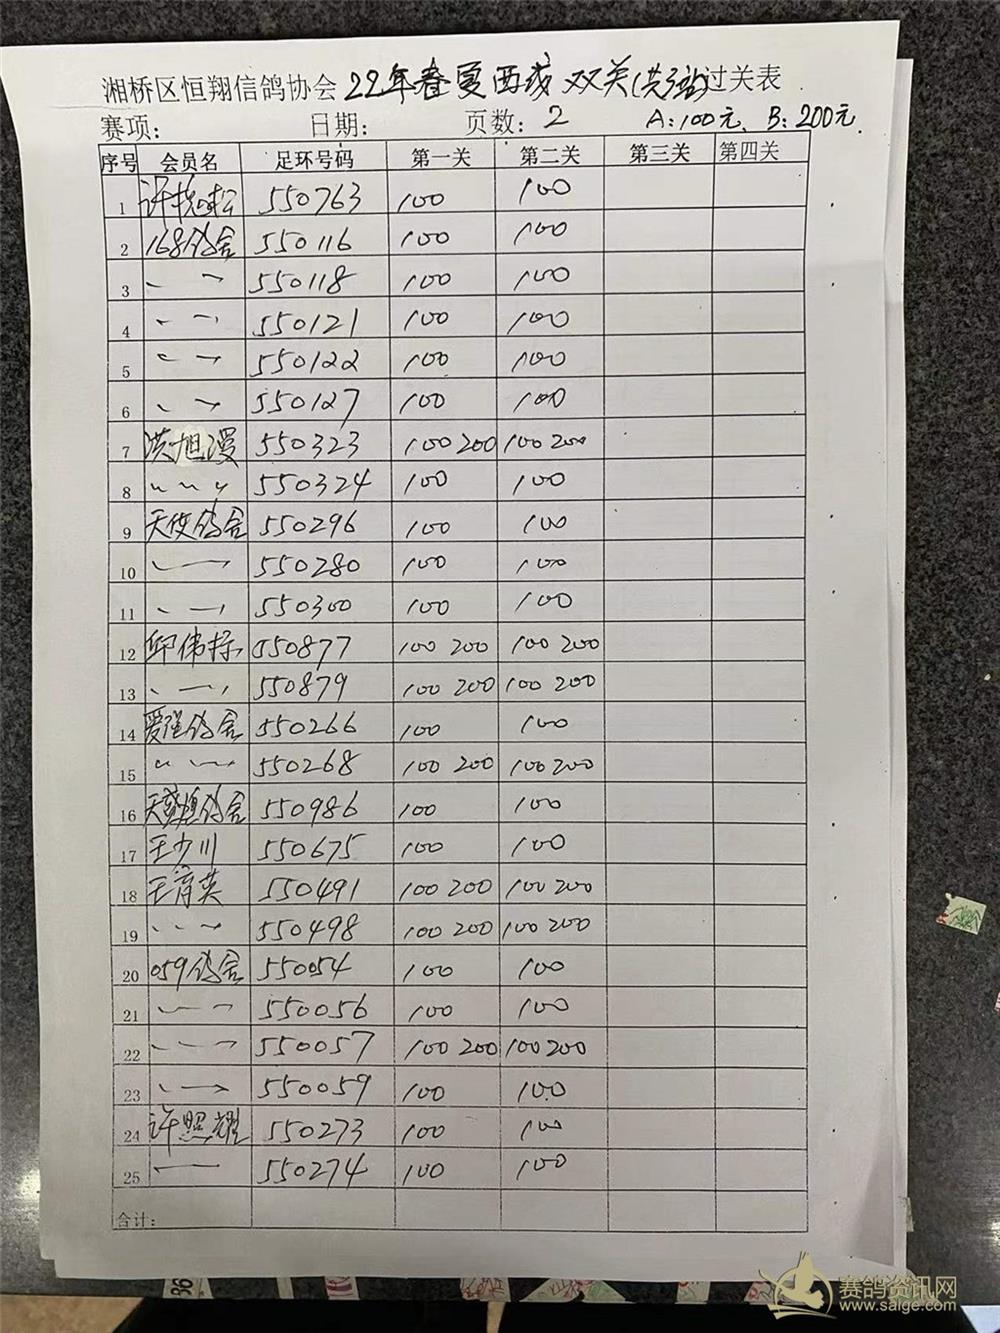 湘桥区恒翔信鸽协会 22年春夏西线 双关(共3站)过关表
赛项: 日期: 页数: 2 A:100元、B:200元
序号 会员名 足环号码 第一关 第二关 第三关 第四关
1 550763 100 100
2 168鸽舍 550116 100 100
3 〃 〃 550118 100 100
4 〃 〃 550121 100 100
5 〃 〃 550122 100 100
6 〃 〃 550127 100 100
7 洪旭漫 550323 100 200 100 200
8 〃 〃 〃 550324 100 100
9 天使鸽舍 550296 100 100
10 〃 〃 550280 100 100
11 〃 〃 550300 100 100
12 邱伟标 550877 100 200 100 200
13 〃 〃 550879 100 200 100 200
14 鸽舍 550266 100 100
15 〃 〃 550268 100 200 100 200
16 鸽舍 550986 100 100
17 王少川 550675 100 100
18 王育英 550491 100 200 100 200
19 〃 〃 〃 550498 100 200 100 200
20 059鸽舍 550054 100 100
21 〃 〃 550056 100 100
22 〃 〃 550057 100 200 100 200
23 〃 〃 550059 100 100
24 许照耀 550273 100 100
25 〃 〃 550274 100 100
合计:
98
赛鸽资讯网
www.saige.com